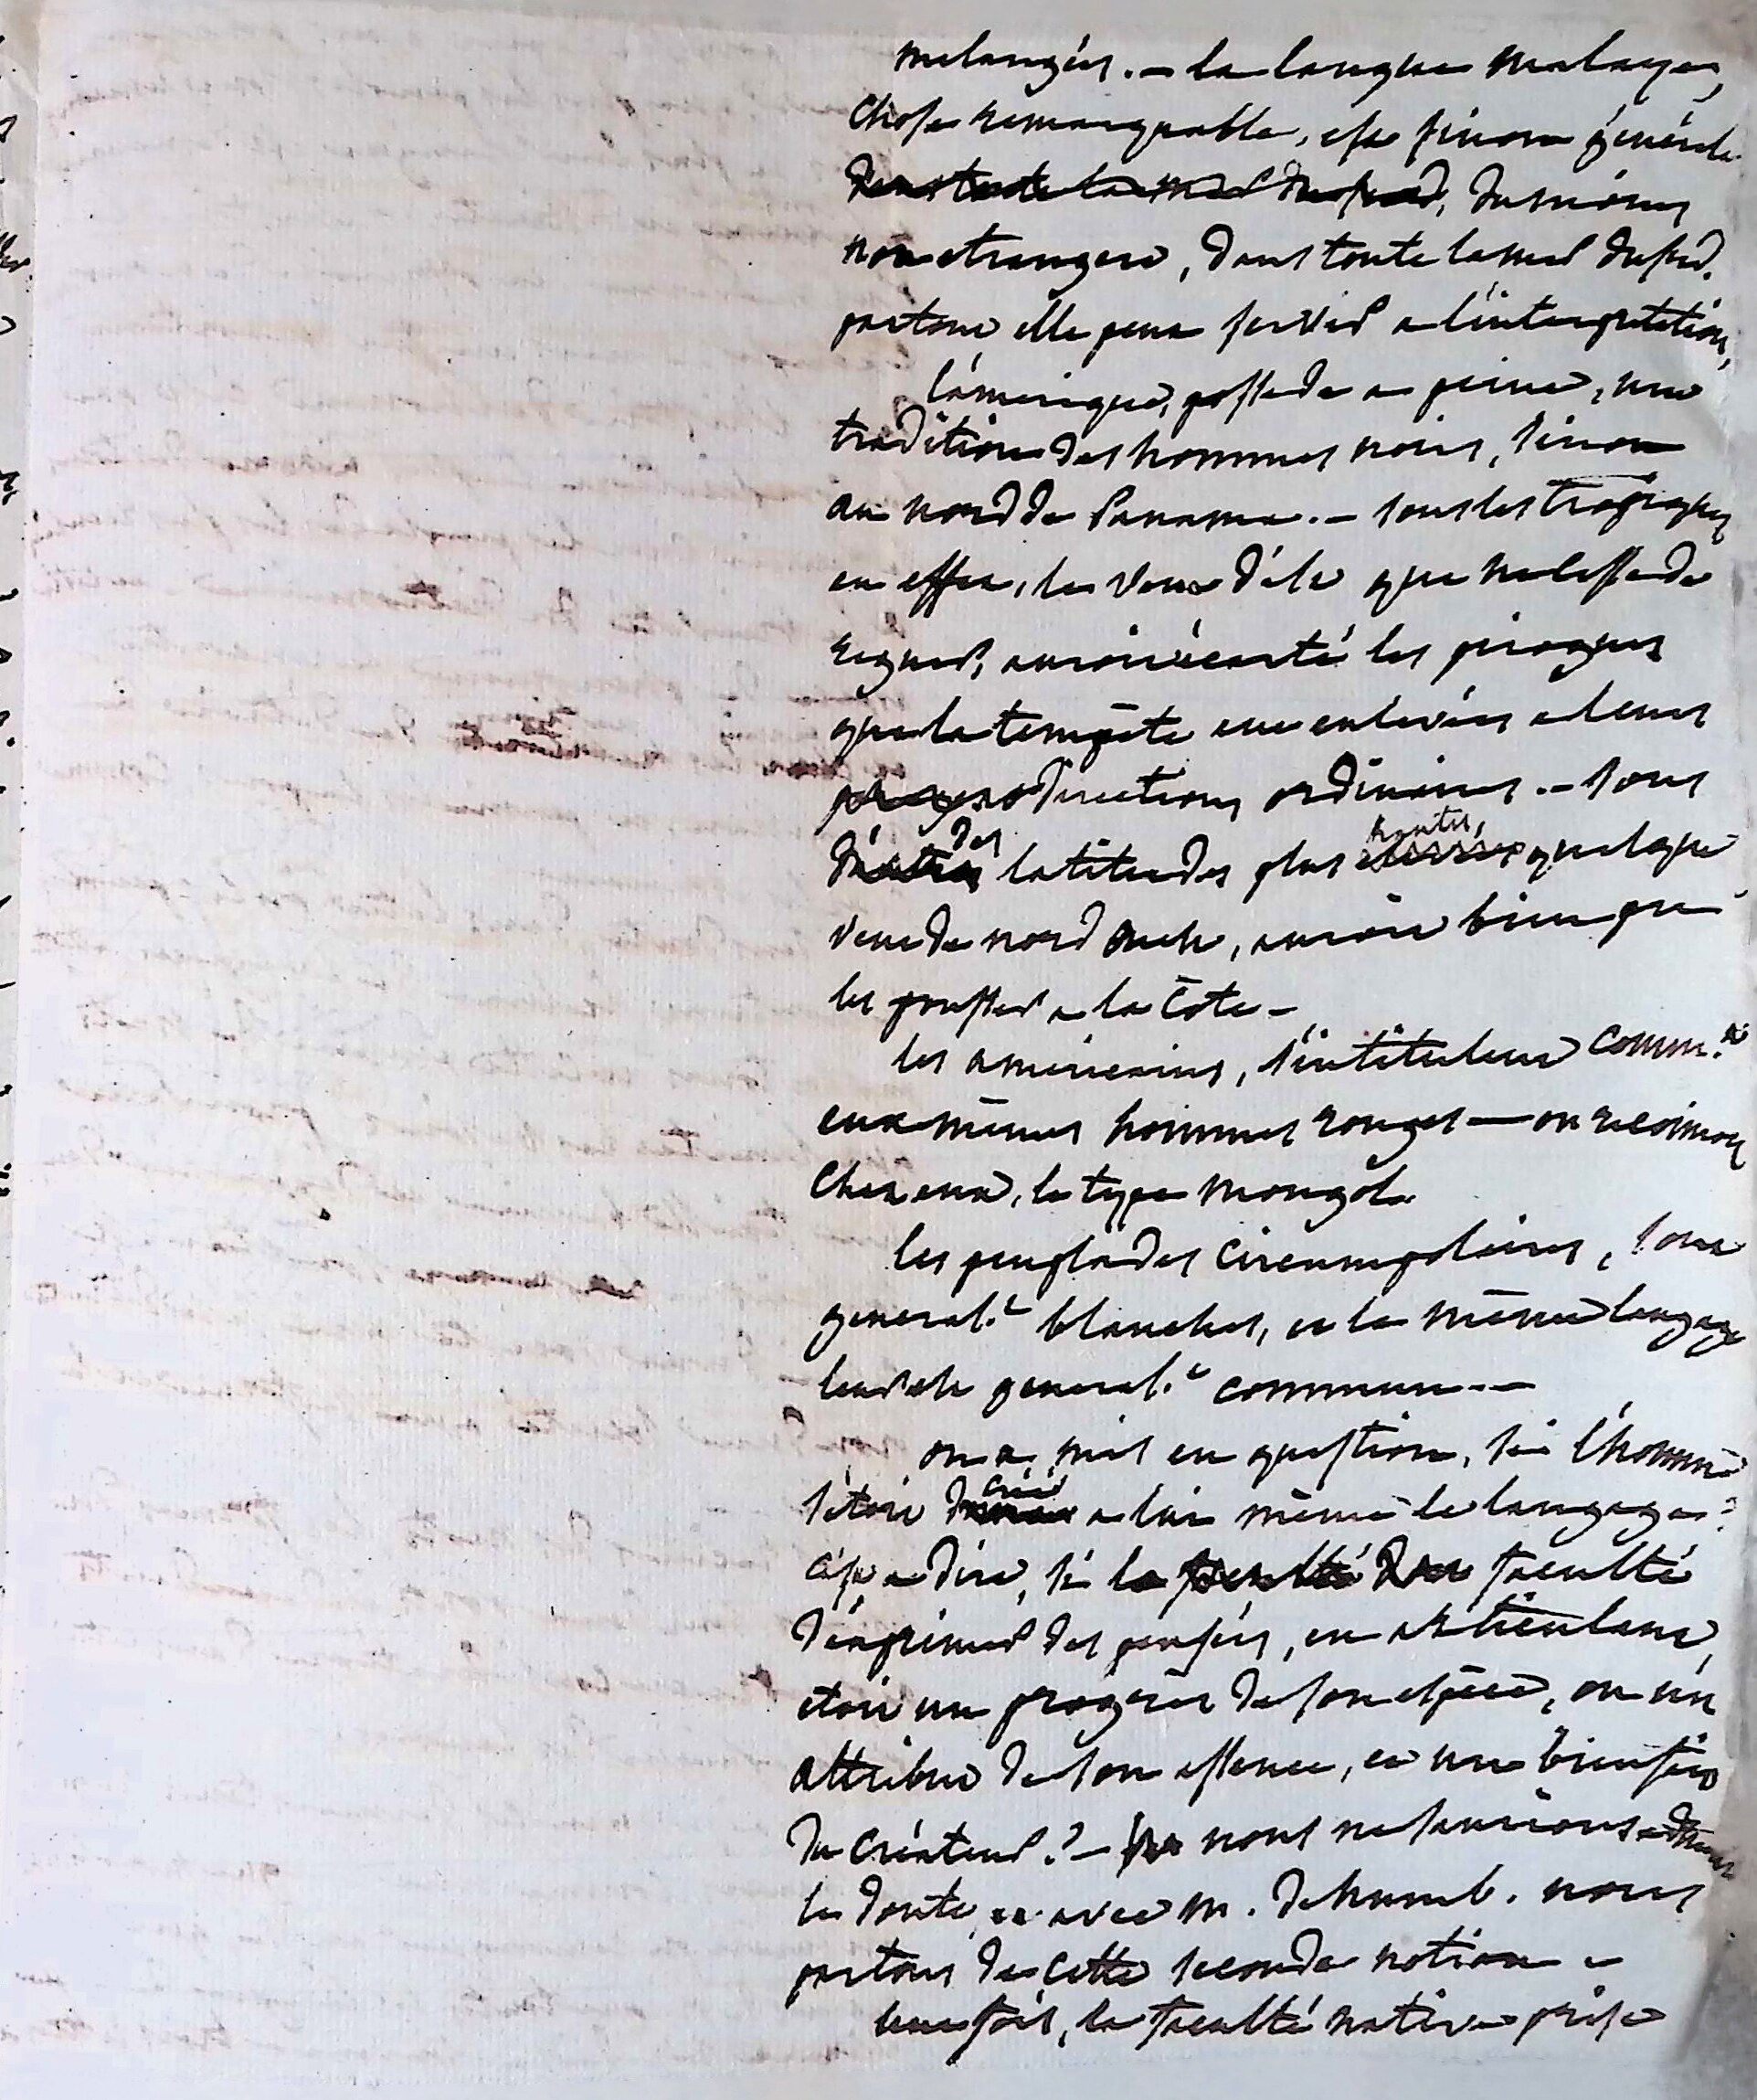 melangées. — la langue malaye,
chose remarquable, est sinon générale
dans toute la mer du sud, du moins
non etrangere, dans toute la mer du sud.
partout elle peut servir a l'interpretation,
l'amerique, possede a peine, une
tradition des hommes noirs, sinon
au nord de Panama. — sous les tropiques
en effet, le vent d'est que ne cesse de
regner, auroit écarté les pirogues
que la tempête eut enlevées a leurs
directions ordinaires. — sous
des latitudes plus hautes, quelque
vent de nord ouest, auroit bien pu
les pousser a la côte —
les americains, s'intitulent comm.t
eux mêmes hommes rouges — on reconnoit
chez eux, le type mongol.
les peuplades circumpolaires, sont
general.t blanches, et le même langage
leur est general.t commun. —
on a mis en question, si l'homme
s'étoit créé a lui même le langage?
c'est a dire, si la faculté
d'exprimer des pensées, en articulant,
etoit un progrès de son espèce, ou un
attribut de son essence, et un bienfait
du Créateur? — nous ne saurions admettre
le doute, et avec M. de humb. nous
partons de cette seconde notion —
une fois, la faculté native prise